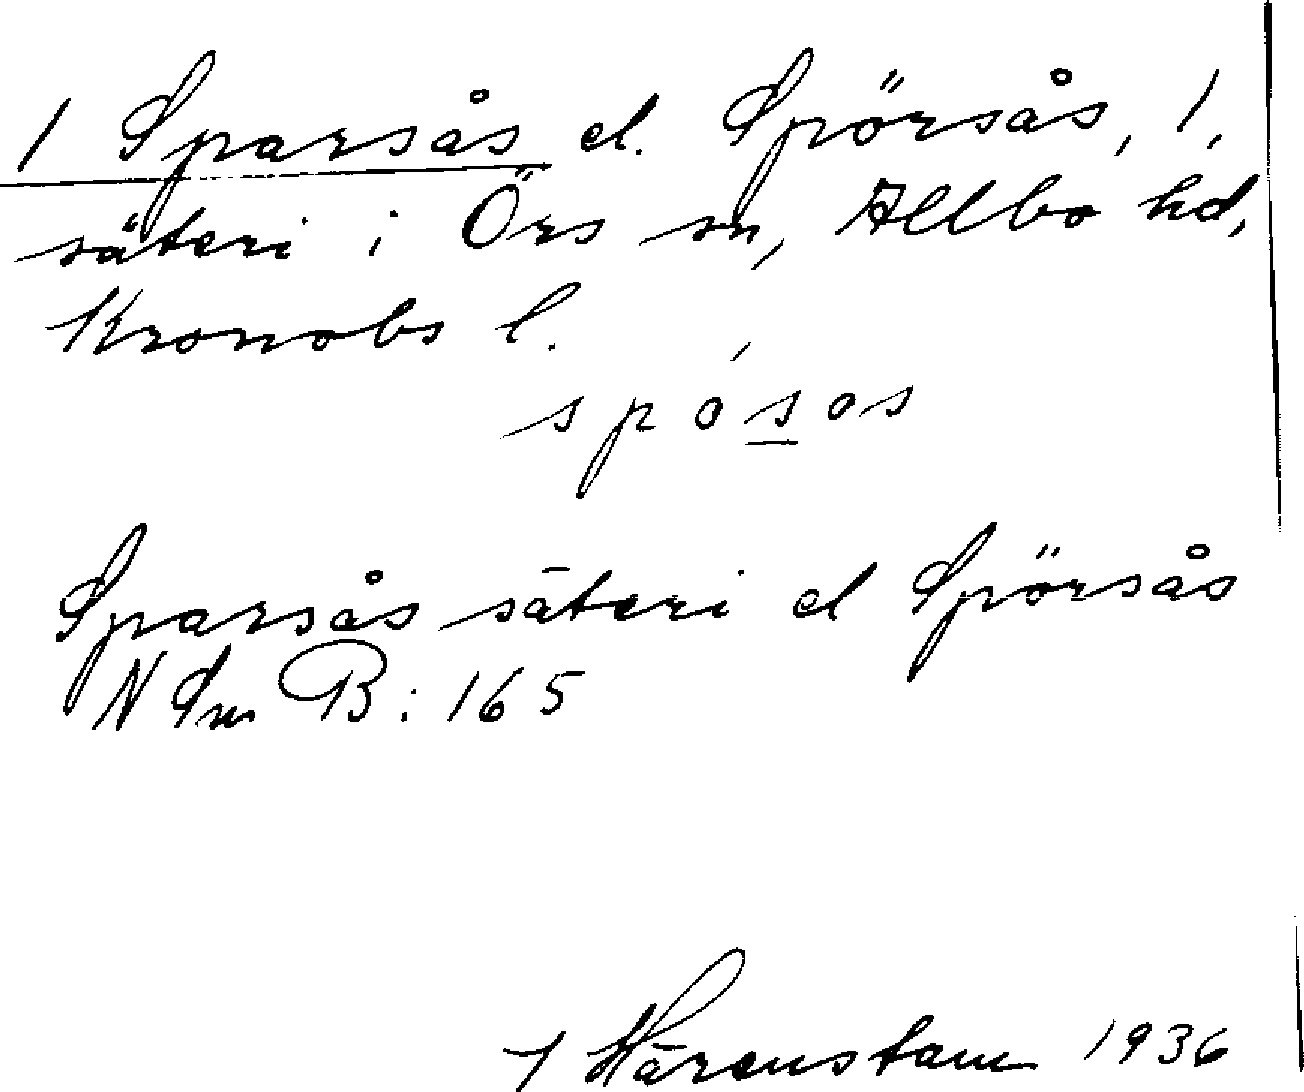 1 Sparsås el. Spörsås, 1,
säteri i Örs sn, Allbo hd,
Kronobs l.
spósos
Sparsås säteri el Spörsås
N Sm B: 165
Härenstam 1936